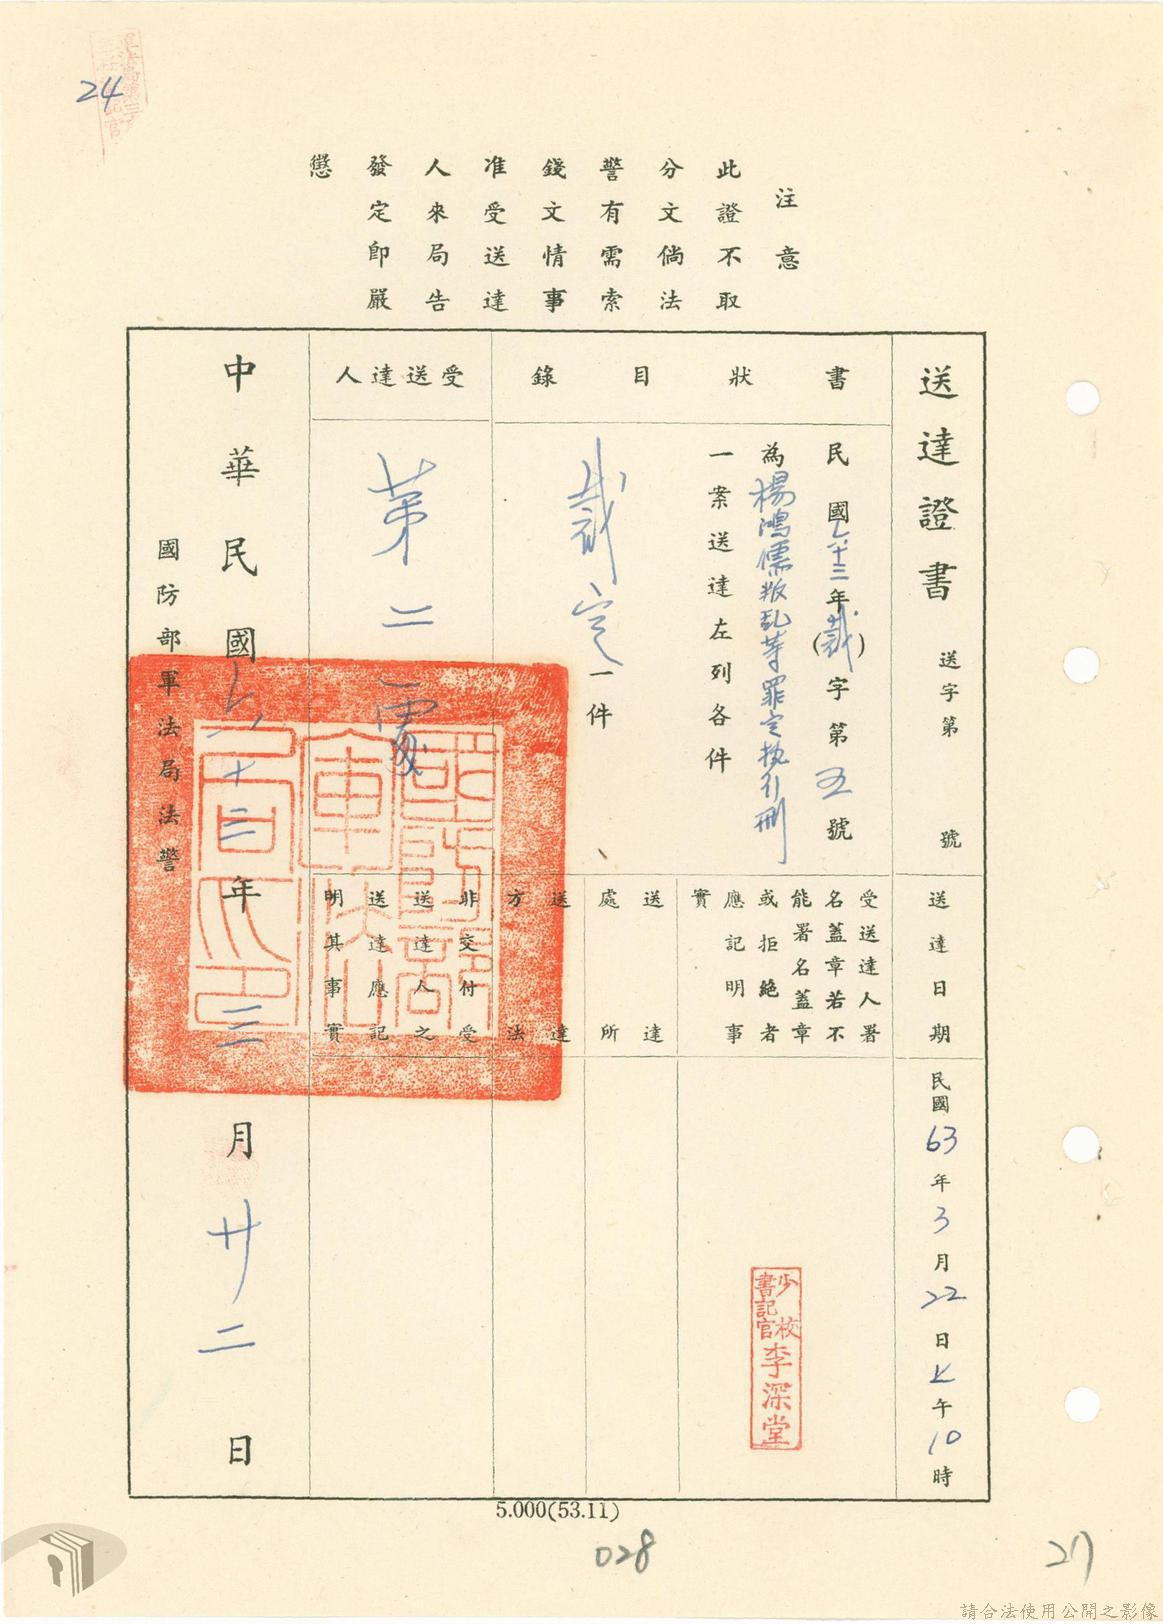 24
注意
此證不取
分文倘法
警有需索
錢文情事
准受送達
人來局告
發定即嚴
懲
送達證書
送字第 號
書狀目錄
民國六十三年(裁)字第五號
為楊鴻儒叛乱等罪定执行刑
一案送達左列各件
裁定一件
受送達人
第二處
送達日期
民國63年3月22日上午10時
受送達人署
名蓋章若不
能署名蓋章
或拒絕者
應記明事
實
少校
書記官
李深堂
送達
處所
送達
方法
非交付受
送達人之
送達應記
明其事實
國防部
軍法局
印
中華民國六十三年三月廿二日
國防部軍法局法警
5.000(53.11)
028
27
請合法使用公開之影像